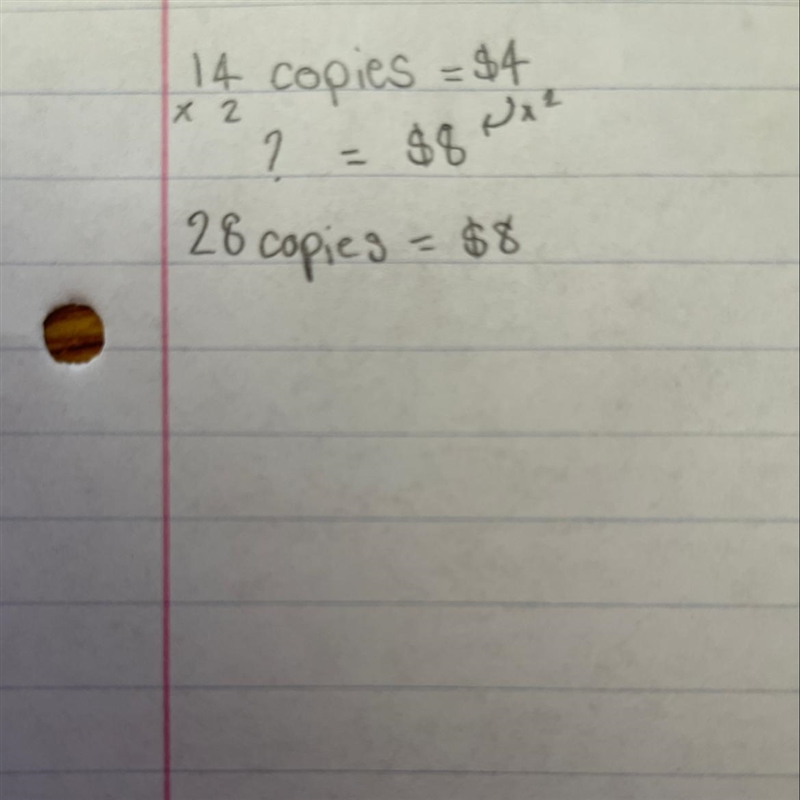 14 copies = $4
x 2
x2
? = $8
28 copies = $8